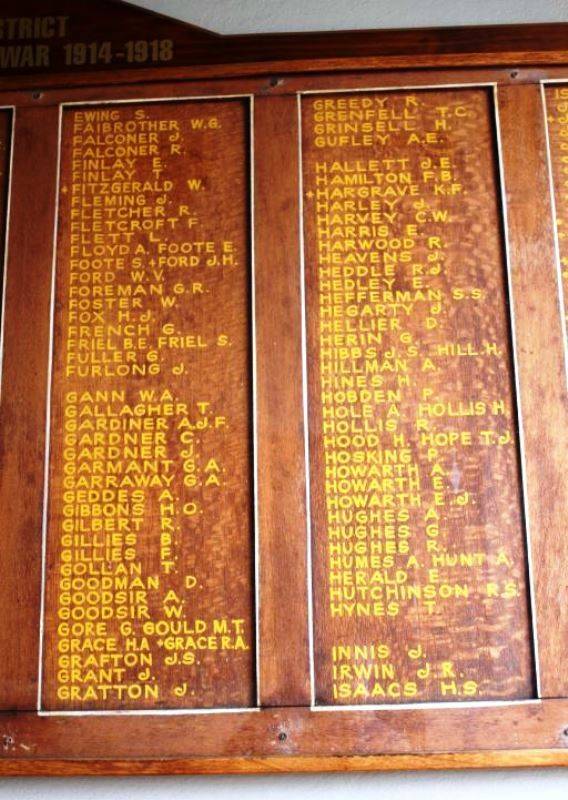 STRICT
WAR 1914-1918
EWING S.
FAIBROTHER W.G.
FALCONER J.
FALCONER R.
FINLAY E.
FINLAY T.
+FITZGERALD W.
FLEMING J.
FLETCHER R.
FLETCROFT F.
FLETT L.
FLOYD A. FOOTE E.
FOOTE S. +FORD J.H.
FORD W.V.
FOREMAN G.R.
FOSTER W.
FOX H.J.
FRENCH G.
FRIEL B.E. FRIEL S.
FULLER G.
FURLONG J.
GANN W.A.
GALLAGHER T.
GARDINER A.J.F.
GARDNER C.
GARDNER J.
GARMANT G.A.
GARRAWAY G.A.
GEDDES A.
GIBBONS H.O.
GILBERT R.
GILLIES B.
GILLIES F.
GOLLAN T.
GOODMAN D.
GOODSIR A.
GOODSIR W.
GORE G. GOULD M.T.
GRACE H.A +GRACE R.A.
GRAFTON J.S.
GRANT J.
GRATTON J.
GREEDY R.
GRENFELL T.C.
GRINSELL H.
GUFLEY A.E.
HALLETT J.E.
HAMILTON F.B.
+HARGRAVE K.F.
HARLEY J.
HARVEY C.W.
HARRIS E.
HARWOOD R.
HEAVENS J.
HEDDLE R.J.
HEDLEY E.
HEFFERMAN S.S.
HEGARTY J.
HELLIER D.
HERIN G.
HIBBS J.S. HILL.H.
HILLMAN A.
HINES H.
HOBDEN P.
HOLE A. HOLLIS H.
HOLLIS R.
HOOD H. HOPE T.J.
HOSKING P.
HOWARTH A.
HOWARTH E.
HOWARTH E.J.
HUGHES A.
HUGHES G.
HUGHES R.
HUMES A. HUNT A.
HERALD E.
HUTCHINSON R.S.
HYNES T.
INNIS J.
IRWIN J R.
ISAACS H.S.